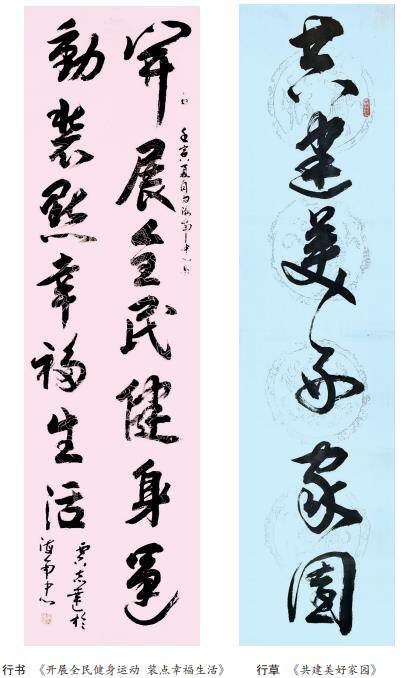 開展全民健身運
動裝點幸福生活
海南中心
共建美好家園
行书 《开展全民健身运动 装点幸福生活》
行草 《共建美好家园》